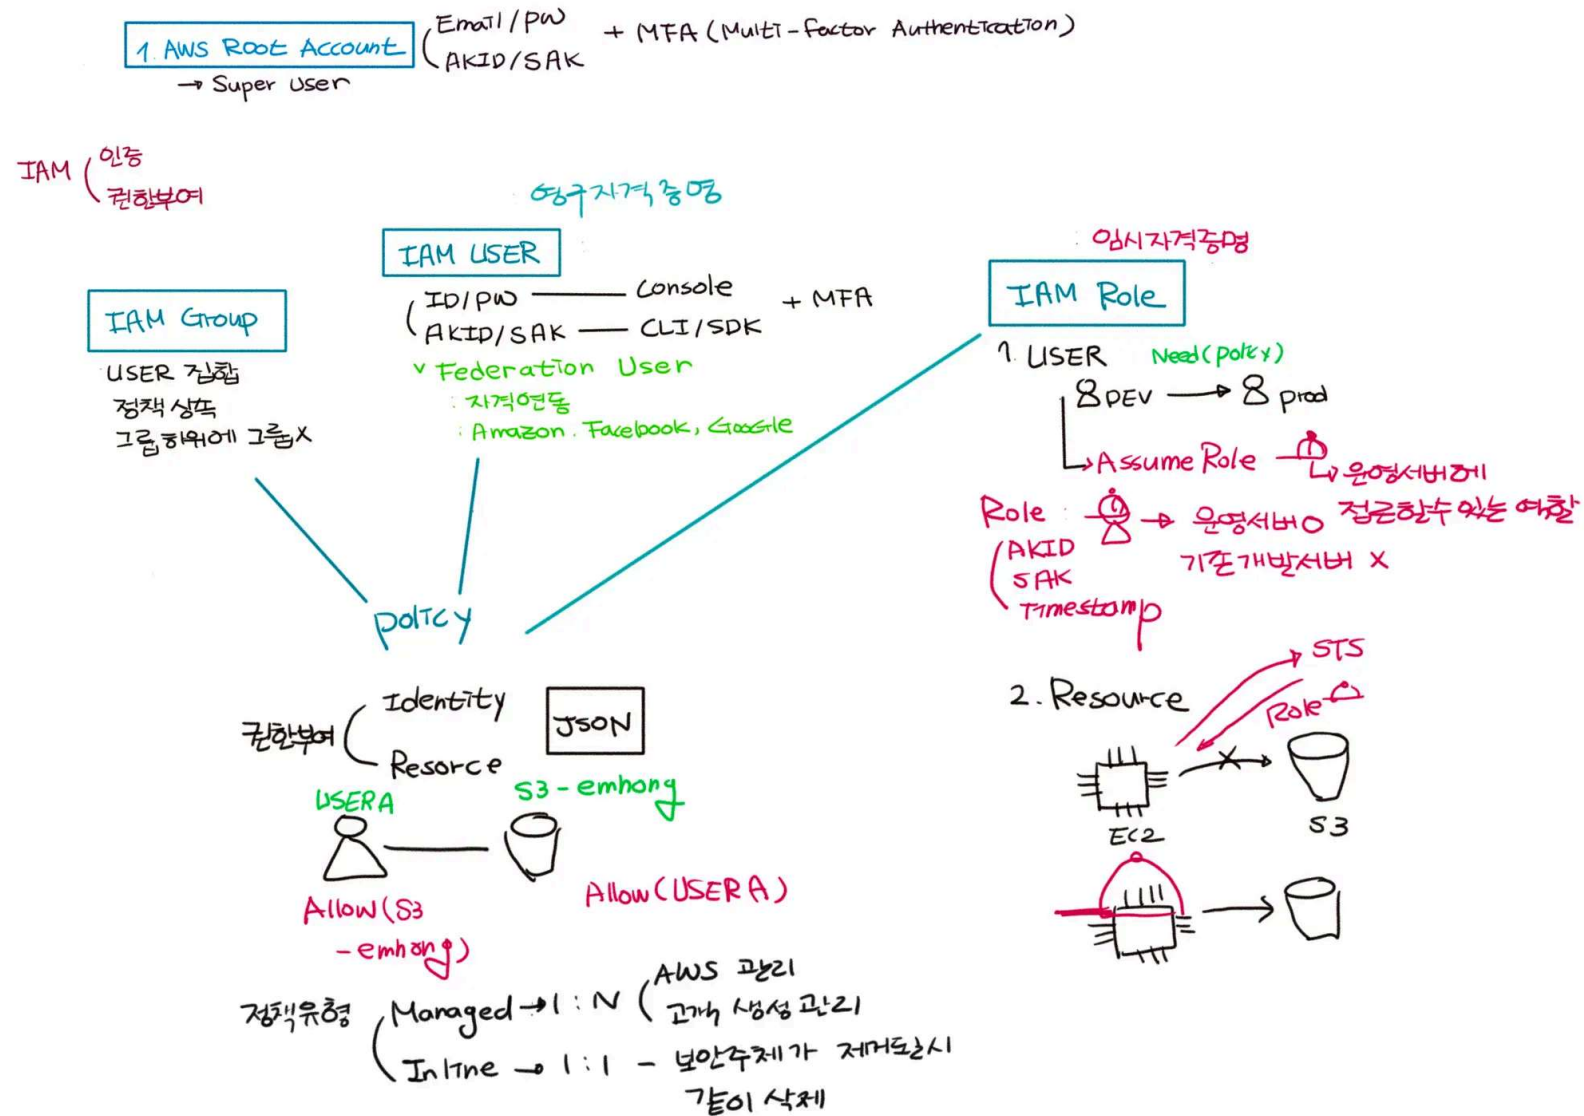 1. AWS Root Account
Email/PW
AKID/SAK
+ MFA (Multi-factor Authentication)
→ Super User
IAM
인증
권한부여
영구자격증명
IAM USER
ID/PW — Console
AKID/SAK — CLI/SDK
+ MFA
v Federation User
: 자격연동
: Amazon. Facebook, Google
IAM Group
USER 집합
정책 상속
그룹 하위에 그룹X
: 임시자격증명
IAM Role
1. USER
Need(policy)
DEV → prod
→ Assume Role
→ 운영서버에
접근할수 있는 역할
Role :
→ 운영서버O
기존개발서버 X
AKID
SAK
Timestamp
policy
권한부여
Identity
Resorce
JSON
USER A
S3-emhong
Allow(S3
-emhong)
Allow(USER A)
2. Resource
STS
Role
EC2
S3
정책유형
Managed → 1:N
AWS 관리
고객 생성 관리
Inline → 1:1 - 보안주체가 제거될시
같이 삭제